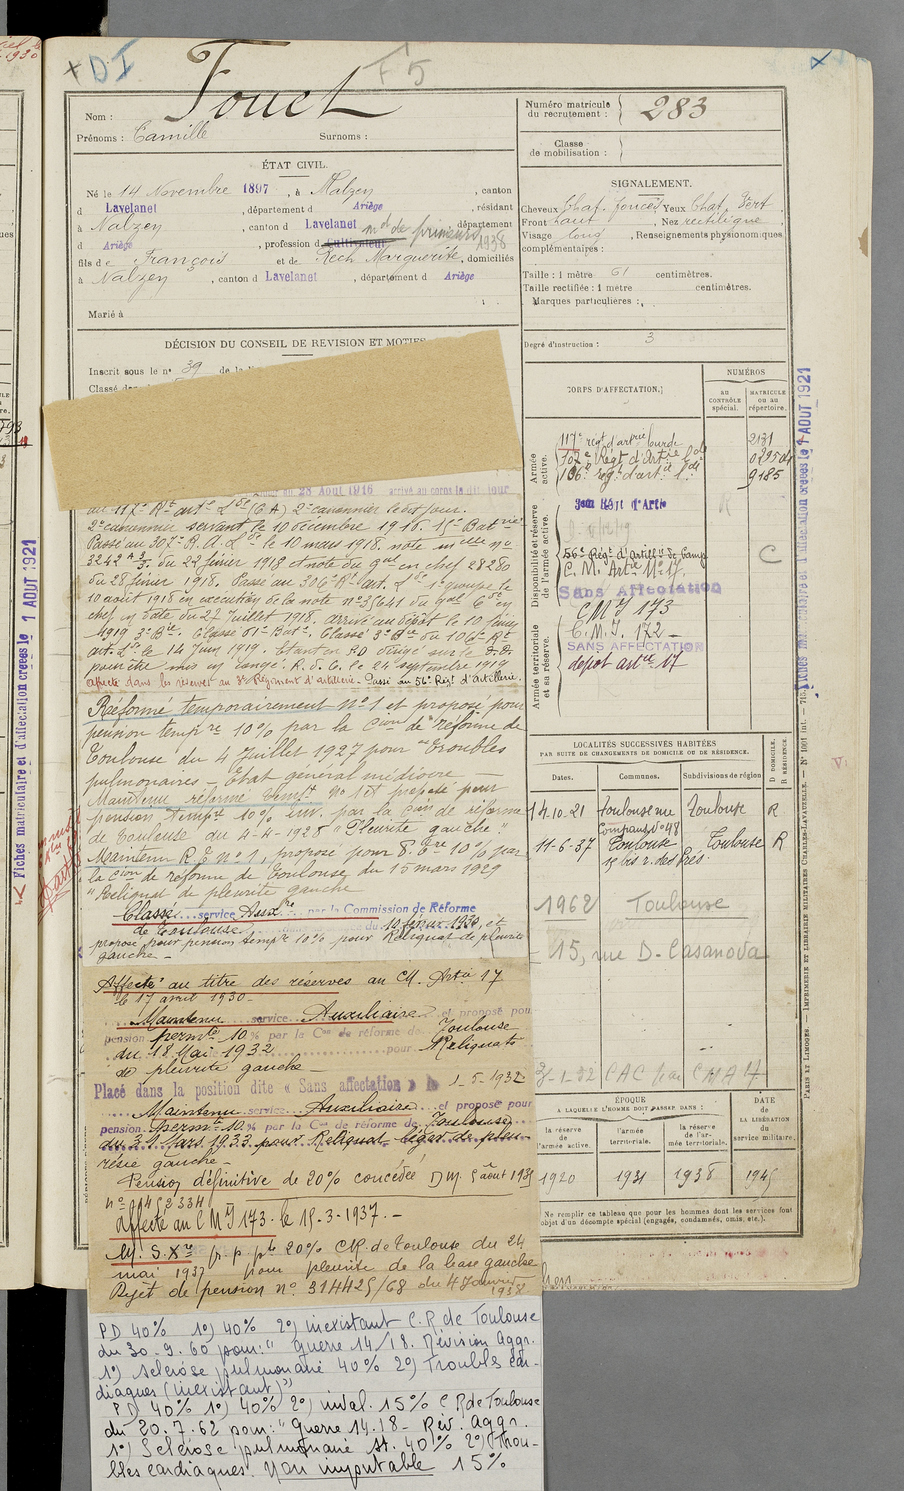 D.I
F 5
Nom : Fouet
Prénoms : Camille Surnoms :
ÉTAT CIVIL.
Né le 14 Novembre 1897, à Nalzen, canton
d Lavelanet, département d Ariège, résidant
à Nalzen, canton d Lavelanet, département
d Ariège, profession d cultivateur md de primeurs 1938
fils de François et de Rech Marguerite, domiciliés
à Nalzen, canton d Lavelanet, département d Ariège
Marié à
DÉCISION DU CONSEIL DE REVISION ET MOTIFS
Inscrit sous le n° 39 de la
Classé dans
28 Aout 1916 arrivé au corps le dit jour
au 117e Rt art. Lde (EA) 2e canonnier le dit jour.
2e canonnier servant le 10 décembre 1916. 15e Batrie
Passé au 307e R.A. Lde le 10 mars 1918. note mielle no
3242 A 3/3. du 22 février 1918 et note du gal en chef 28280
du 28 février 1918. Passé au 306e Rt art. Lde 1er groupe le
10 août 1918 en exécution de la note n° 35641 du gal Ct en
chef en date du 27 Juillet 1918. arrivé au dépôt le 10 Juin
1919 3e Bie. Classé 61e Batie. Classé 3e Bie du 106e Rt
art. Lde le 14 Juin 1919. Etant en RD dirigé sur le d.d.
pour être mis en congé. R.d.C. le 24 septembre 1919
affecté dans les réserves au 3e Régiment d'artillerie. Passé au 56e Régt d'artillerie.
Réformé temporairement N°1 et proposé pour
pension tempre 10% par la Cion de réforme de
Toulouse du 4 Juillet 1927 pour "Troubles
pulmonaires – Etat général médiocre –
Maintenu réformé tempt No 1 et proposé pour
pension tempre 10% inv. par la Con de réforme
de Toulouse du 4-4-1928 "Pleurite gauche"
Maintenu R.T. n° 1, proposé pour P. Tre 10% par
la Cion de réforme de Toulouse du 15 mars 1929
"Reliquat de pleurite gauche
Classé service Auxre par la Commission de Réforme
de Toulouse du 10 février 1930, et
proposé pour pension tempre 10% pour Reliquats de pleurite
gauche –
Affecté au titre des réserves au CM. Artie 17
le 17 avril 1930 –
Maintenu service Auxiliaire et proposé pour
pension permte 10% par la Con de réforme de Toulouse
du 18 Mai 1932 pour Reliquats
de pleurite gauche –
Placé dans la position dite « Sans affectation » le 1-5-1932
Maintenu service Auxiliaire et proposé pour
pension permte 10% par la Con de réforme de Toulouse
du 31 Mars 1933 pour Reliquat léger de pleu-
résie gauche –
Pension définitive de 20% concédée DM 5 août 1935
n° 0452334
affecté au CMI 173. le 15-3-1937. –
M. S. Xre p. p. pte 20% CR. de Toulouse du 24
mai 1937 pour pleurite de la base gauche
Rejet de pension n° 314425/68 du 4 Janvier
1938
PD 40% 1°) 40% 2°) inexistant C.R. de Toulouse
du 30.9.60 pour: "Guerre 14/18. Révision Aggr.
1°) Sclérose pulmonaire 40% 2°) Troubles car-
diaques (inexistant)"
PD 40% 1°) 40% 2°) inval. 15% C R de Toulouse
du 20.7.62 pour: "Guerre 14.18 – Rév. Aggr.
1°) Sclérose pulmonaire st. 40% 2°) Trou-
bles cardiaques. Non imputable 15%
Numéro matricule
du recrutement : 283
Classe
de mobilisation :
SIGNALEMENT.
Cheveux Chat. foncés Yeux Chat. Vert
Front haut, Nez rectiligne
Visage long, Renseignements physionomiques
complémentaires :
Taille : 1 mètre 61 centimètres.
Taille rectifiée : 1 mètre centimètres.
Marques particulières :
Degré d'instruction : 3
CORPS D'AFFECTATION.
NUMÉROS
AU
CONTRÔLE
spécial.
MATRICULE
OU AU
répertoire.
Armée
active.
117e régt d'artrie lourde 2131
307e Régt d'Artie Lde 029504
106e régt d'art. Lde 9185
Disponibilité et réserve
de l'armée active.
3eme Régt d'Artie
56e Régt d'Artillie de Camp
C. M. Artie N° 17
C
Sans Affectation
Armée territoriale
et sa réserve.
CMI 173
C.M.I. 172 –
SANS AFFECTATION
dépôt artie 17
LOCALITÉS SUCCESSIVES HABITÉES
PAR SUITE DE CHANGEMENTS DE DOMICILE OU DE RÉSIDENCE.
Dates. Communes. Subdivisions de région.
D. DOMICILE.
R. RÉSIDENCE.
14.10.21 Toulouse rue Toulouse R
Compans N° 48
11-6-37 Toulouse Toulouse R
15 bis r. des Prés.
1962 Toulouse
15, rue D. Casanova
ÉPOQUE
A LAQUELLE L'HOMME DOIT PASSER DANS :
la réserve
de
l'armée active.
l'armée
territoriale.
la réserve
de l'ar-
mée territoriale.
DATE
de
LA LIBÉRATION
du
service militaire.
1920 1931 1938 1945
Ne remplir ce tableau que pour les hommes dont les services font
l'objet d'un décompte spécial (engagés, condamnés, omis, etc.).
Fiches matriculaire et d'affectation créées le 1 AOUT 1921
Fiches matriculaire et d'affectation créées le 1 AOUT 1921
PARIS ET LIMOGES. — IMPRIMERIE ET LIBRAIRIE MILITAIRES CHARLES-LAVAUZELLE.